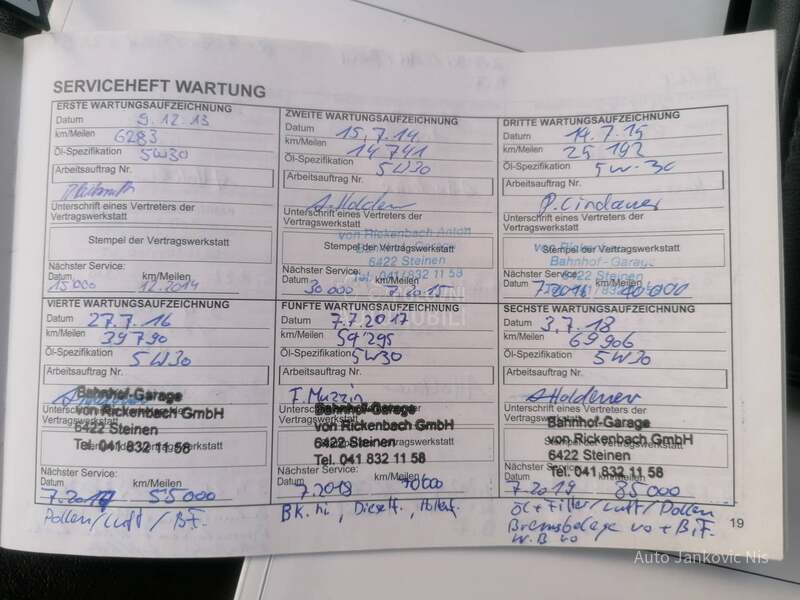 SERVICEHEFT WARTUNG
ERSTE WARTUNGSAUFZEICHNUNG
Datum 9.12.13
km/Meilen 6283
Öl-Spezifikation 5W30
Arbeitsauftrag Nr.
Unterschrift eines Vertreters der
Vertragswerkstatt
Stempel der Vertragswerkstatt
Nächster Service:
Datum km/Meilen
15000 12.2014
ZWEITE WARTUNGSAUFZEICHNUNG
Datum 15.7.14
km/Meilen 14741
Öl-Spezifikation 5W30
Arbeitsauftrag Nr.
Unterschrift eines Vertreters der
Vertragswerkstatt
von Rickenbach Anton
Stempel der Vertragswerkstatt
6422 Steinen
Tel. 041/832 11 58
Nächster Service:
Datum km/Meilen
30000 7.2015
DRITTE WARTUNGSAUFZEICHNUNG
Datum 14.7.15
km/Meilen 25192
Öl-Spezifikation 5W-30
Arbeitsauftrag Nr.
P. Lindauer
Unterschrift eines Vertreters der
Vertragswerkstatt
Stempel der Vertragswerkstatt
Bahnhof-Garage
6422 Steinen
041/832 11 58
Nächster Service:
Datum km/Meilen
7.2016 40000
VIERTE WARTUNGSAUFZEICHNUNG
Datum 27.7.16
km/Meilen 39790
Öl-Spezifikation 5W30
Arbeitsauftrag Nr.
Bahnhof-Garage
Unterschrift eines Vertreters der
von Rickenbach GmbH
Vertragswerkstatt
6422 Steinen
Stempel der Vertragswerkstatt
Tel. 041 832 11 58
Nächster Service:
Datum km/Meilen
7.2017 55000
Pollen/Luft/B.F.
FÜNFTE WARTUNGSAUFZEICHNUNG
Datum 7.7.2017
km/Meilen 54295
Öl-Spezifikation 5W30
Arbeitsauftrag Nr.
Bahnhof-Garage
Unterschrift eines Vertreters der
von Rickenbach GmbH
Vertragswerkstatt
6422 Steinen
Stempel der Vertragswerkstatt
Tel. 041 832 11 58
Nächster Service:
Datum km/Meilen
7.2018 70000
BK. hi, Dieself.,
SECHSTE WARTUNGSAUFZEICHNUNG
Datum 3.7.18
km/Meilen 69906
Öl-Spezifikation 5W30
Arbeitsauftrag Nr.
AHoldener
Unterschrift eines Vertreters der
Vertragswerkstatt
Bahnhof-Garage
von Rickenbach GmbH
Stempel der Vertragswerkstatt
6422 Steinen
Tel. 041 832 11 58
Nächster Service:
Datum km/Meilen
7.2019 85000
Öl+Filter/Luft/Pollen
Bremsbeläge vo + B.F.
W.B vo
19
Auto Jankovic Nis